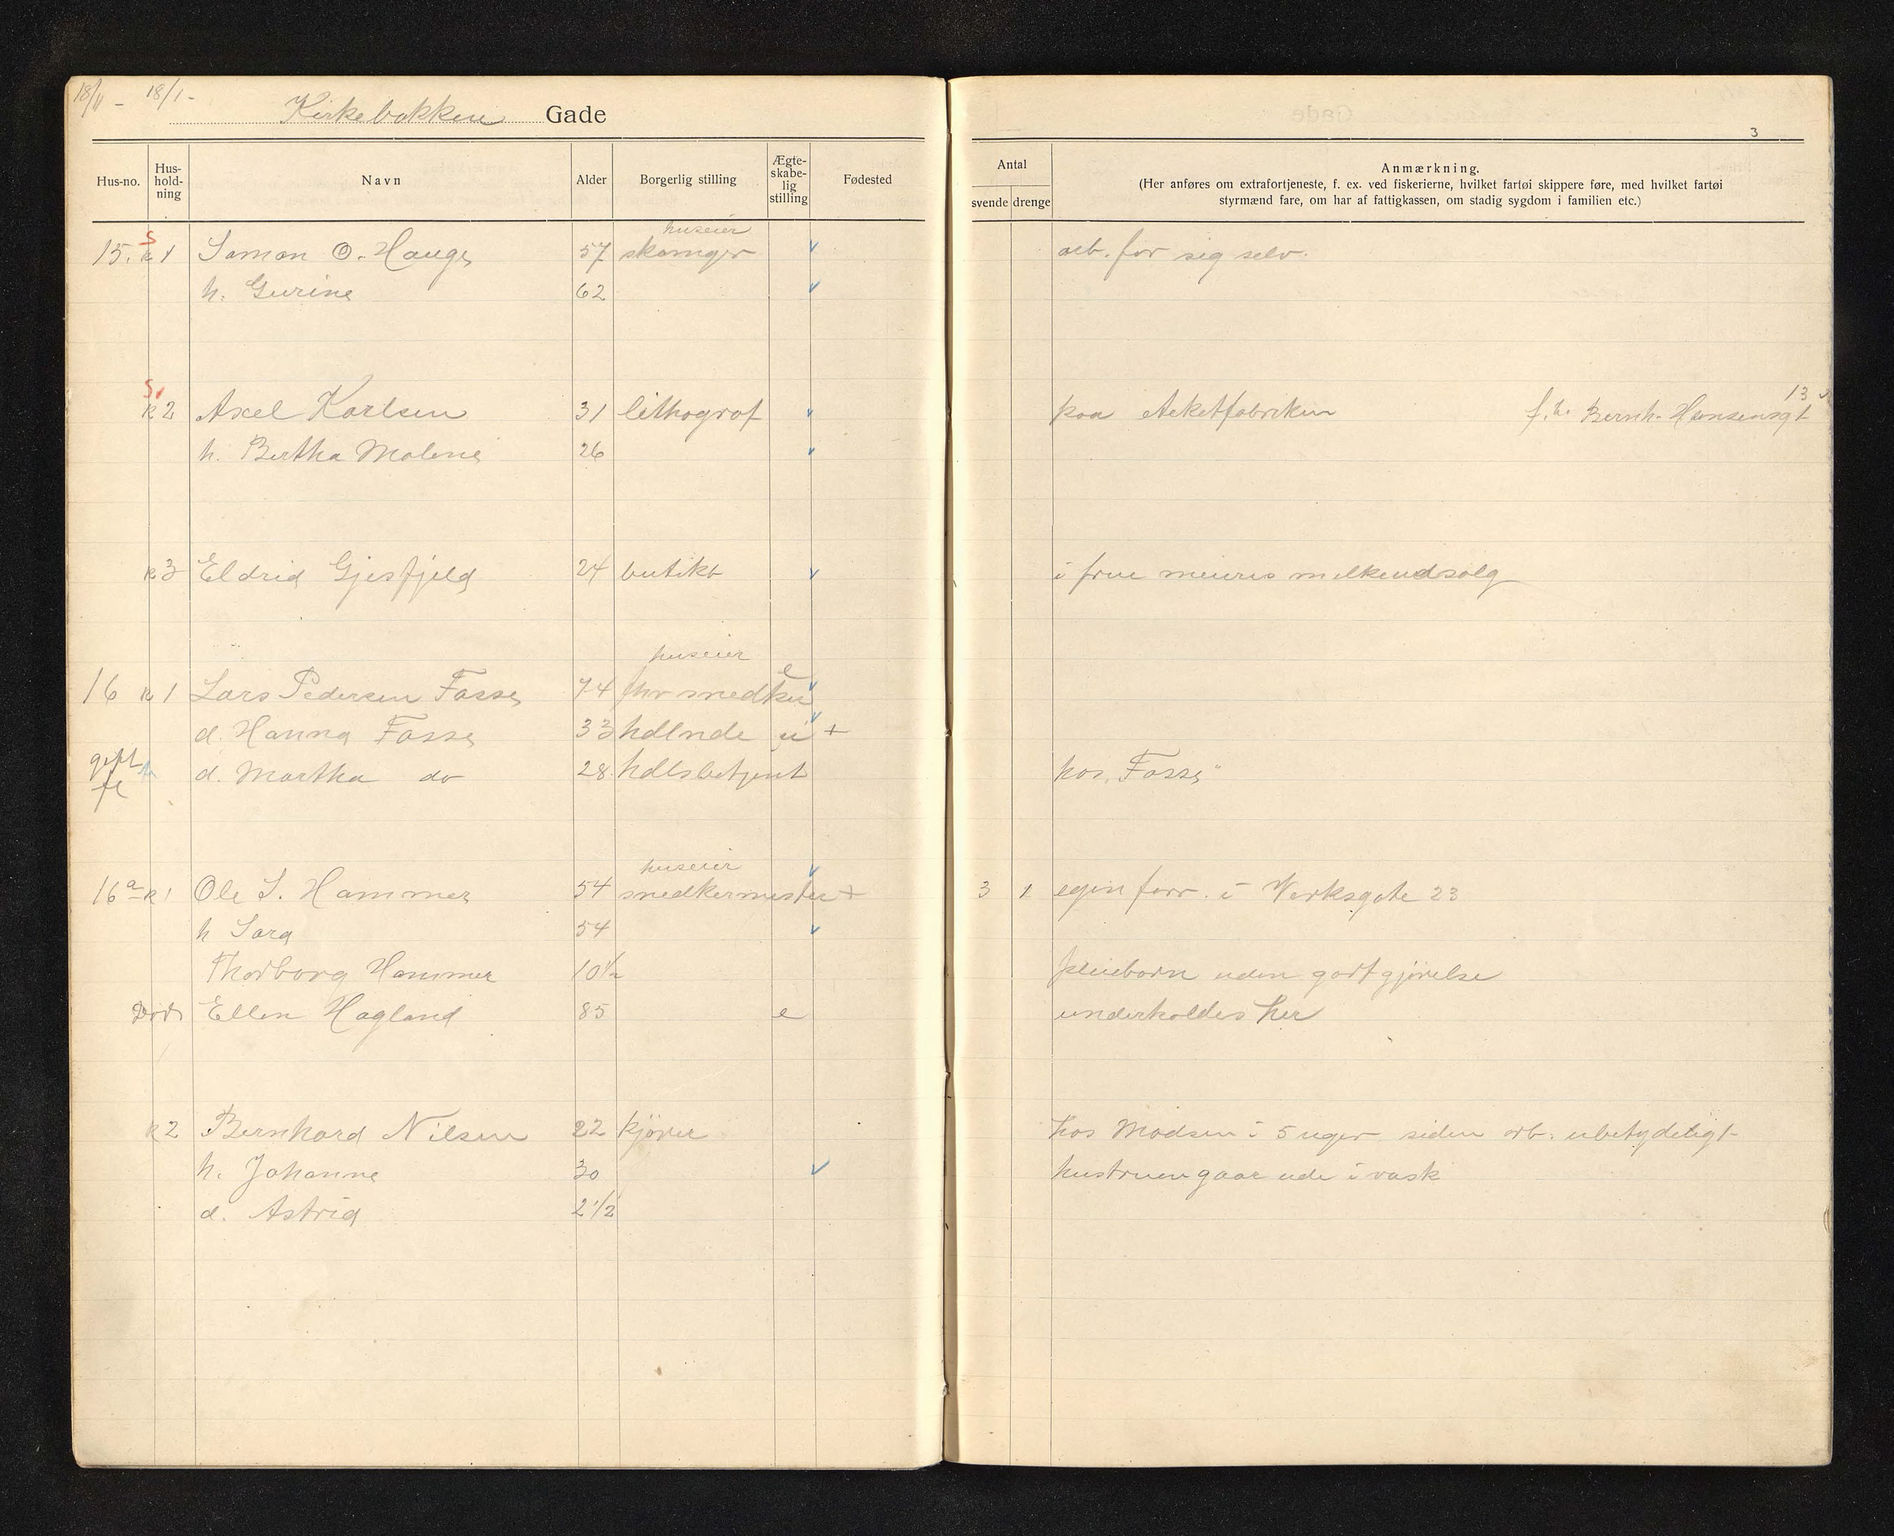 18/11 - 18/1 -
Kirkebakken Gade
3
Hus-no. Hus-hold-ning Navn Alder Borgerlig stilling Ægte-skabe-lig stilling Fødested
Antal
svende drenge
Anmærkning.
(Her anføres om extrafortjeneste, f. ex. ved fiskerierne, hvilket fartøi skippere føre, med hvilket fartøi
styrmænd fare, om har af fattigkassen, om stadig sygdom i familien etc.)
huseier
15. S k 1 Simon O. Hauge 57 skomager arb. for sig selv.
h. Gurine 62
13
S k 2 Axel Karlsen 31 lithograf paa Æeketfabriken f. h. Bernh. Hansensgt
h. Bertha Malene 26
k 3 Eldrid Gjesfjeld 24 butikb i frue meieris melkeudsalg
huseier
16 k 1 Lars Pedersen Fosse 74 fhv snedker e
d. Hanna Fosse 33 hdlnde u +
gift
d. Martha do 28 hdlsbetjent hos "Fosse"
huseier
16a k 1 Ole S. Hammer 54 snedkermester + 3 1 egen forr. i Verksgate 23
h Sara 54
Thorborg Hammer 10½ pleiebarn uden godtgjørelse
Død Ellen Hagland 85 e underholdes her
k 2 Bernhard Nilsen 22 kjører hos Madsen i 5 uger siden arb. ubetydeligt
h. Johanne 30 hustruen gaar ude i vask
d. Astrid 2 1/2